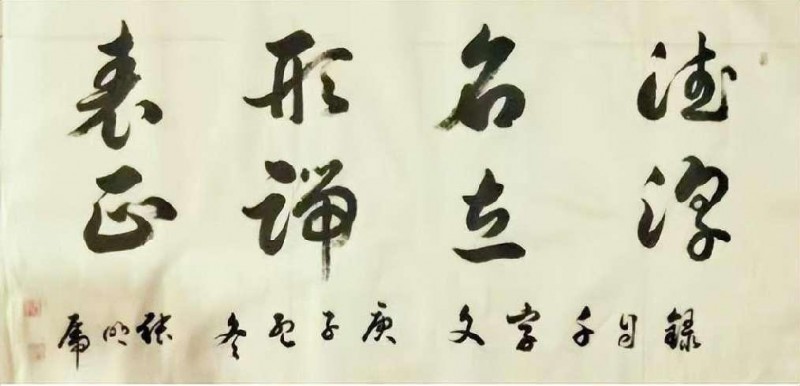 德建
名立
形端
表正
録自千字文 庚子孟冬 張